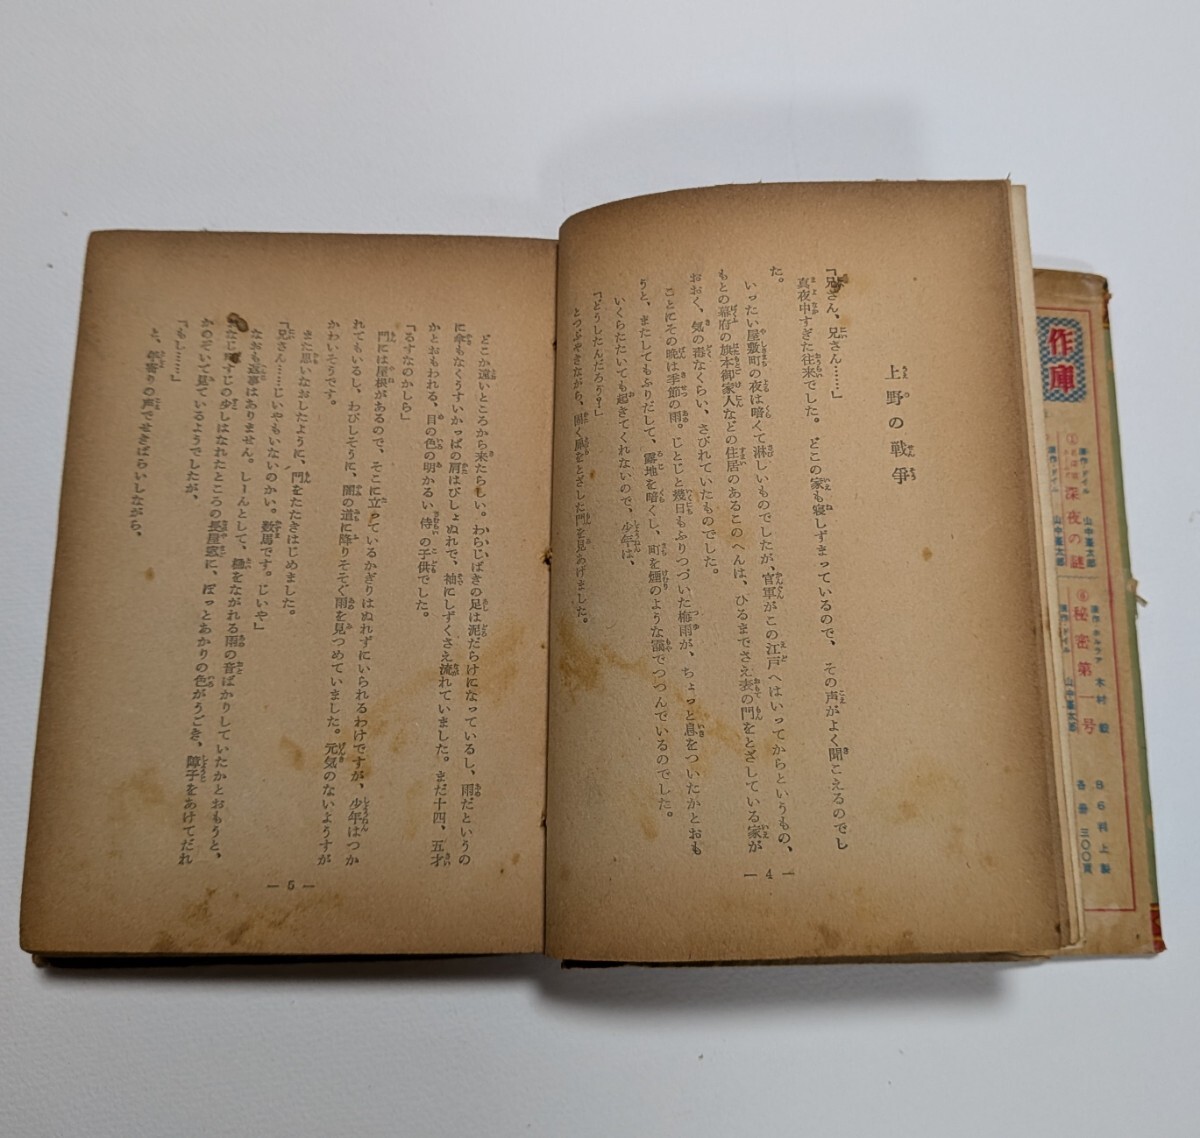 上野の戦争
「兄さん、兄さん……」
真夜中すぎた往来でした。どこの家も寝しずまっているので、その声がよく聞こえるのでし
た。
いったい屋敷町の夜は暗くて淋しいものでしたが、官軍がこの江戸へはいってからというもの、
もとの幕府の旗本御家人などの住居のあるこのへんは、ひるまでさえ表の門をとざしている家が
おおく、気の毒なくらい、さびれていたものでした。
ことにその晩は季節の雨。じとじと幾日もふりつづいた梅雨が、ちょっと息をついたかとおも
うと、またしてもふりだして、露地を暗くし、町を煙のような靄でつつんでいるのでした。
いくらたたいても起きてくれないので、少年は、
「どうしたんだろう?」
とつぶやきながら、固く扉をとざした門を見あげました。
— 4 —
どこか遠いところから来たらしい。わらじばきの足は泥だらけになっているし、雨だというの
に傘もなくうすいかっぱの肩はびしょぬれで、袖にしずくさえ流れていました。まだ十四、五才
かとおもわれる、目の色の明かるい侍の子供でした。
「るすなのかしら」
門には屋根があるので、そこに立っているかぎりはぬれずにいられるわけですが、少年はつか
れてもいるし、わびしそうに、闇の道に降りそそぐ雨を見つめていました。元気のないようすが
かわいそうです。
また思いなおしたように、門をたたきはじめました。
「兄さん……じいやもいないのかい。数馬です。じいや」
なおも返事はありません。しーんとして、樋をながれる雨の音ばかりしていたかとおもうと、
おなじ町すじの少しはなれたところの長屋窓に、ぽっとあかりの色がうごき、障子をあけてだれ
かのぞいて見ているようでしたが、
「もし……」
と、年寄りの声でせきばらいしながら、
— 5 —
作
庫
①
深夜の謎
原作・ドイル
山中峯太郎
④
秘密第一号
木村毅
原作・ドイル
山中峯太郎
B6判上製
各冊 三〇〇頁